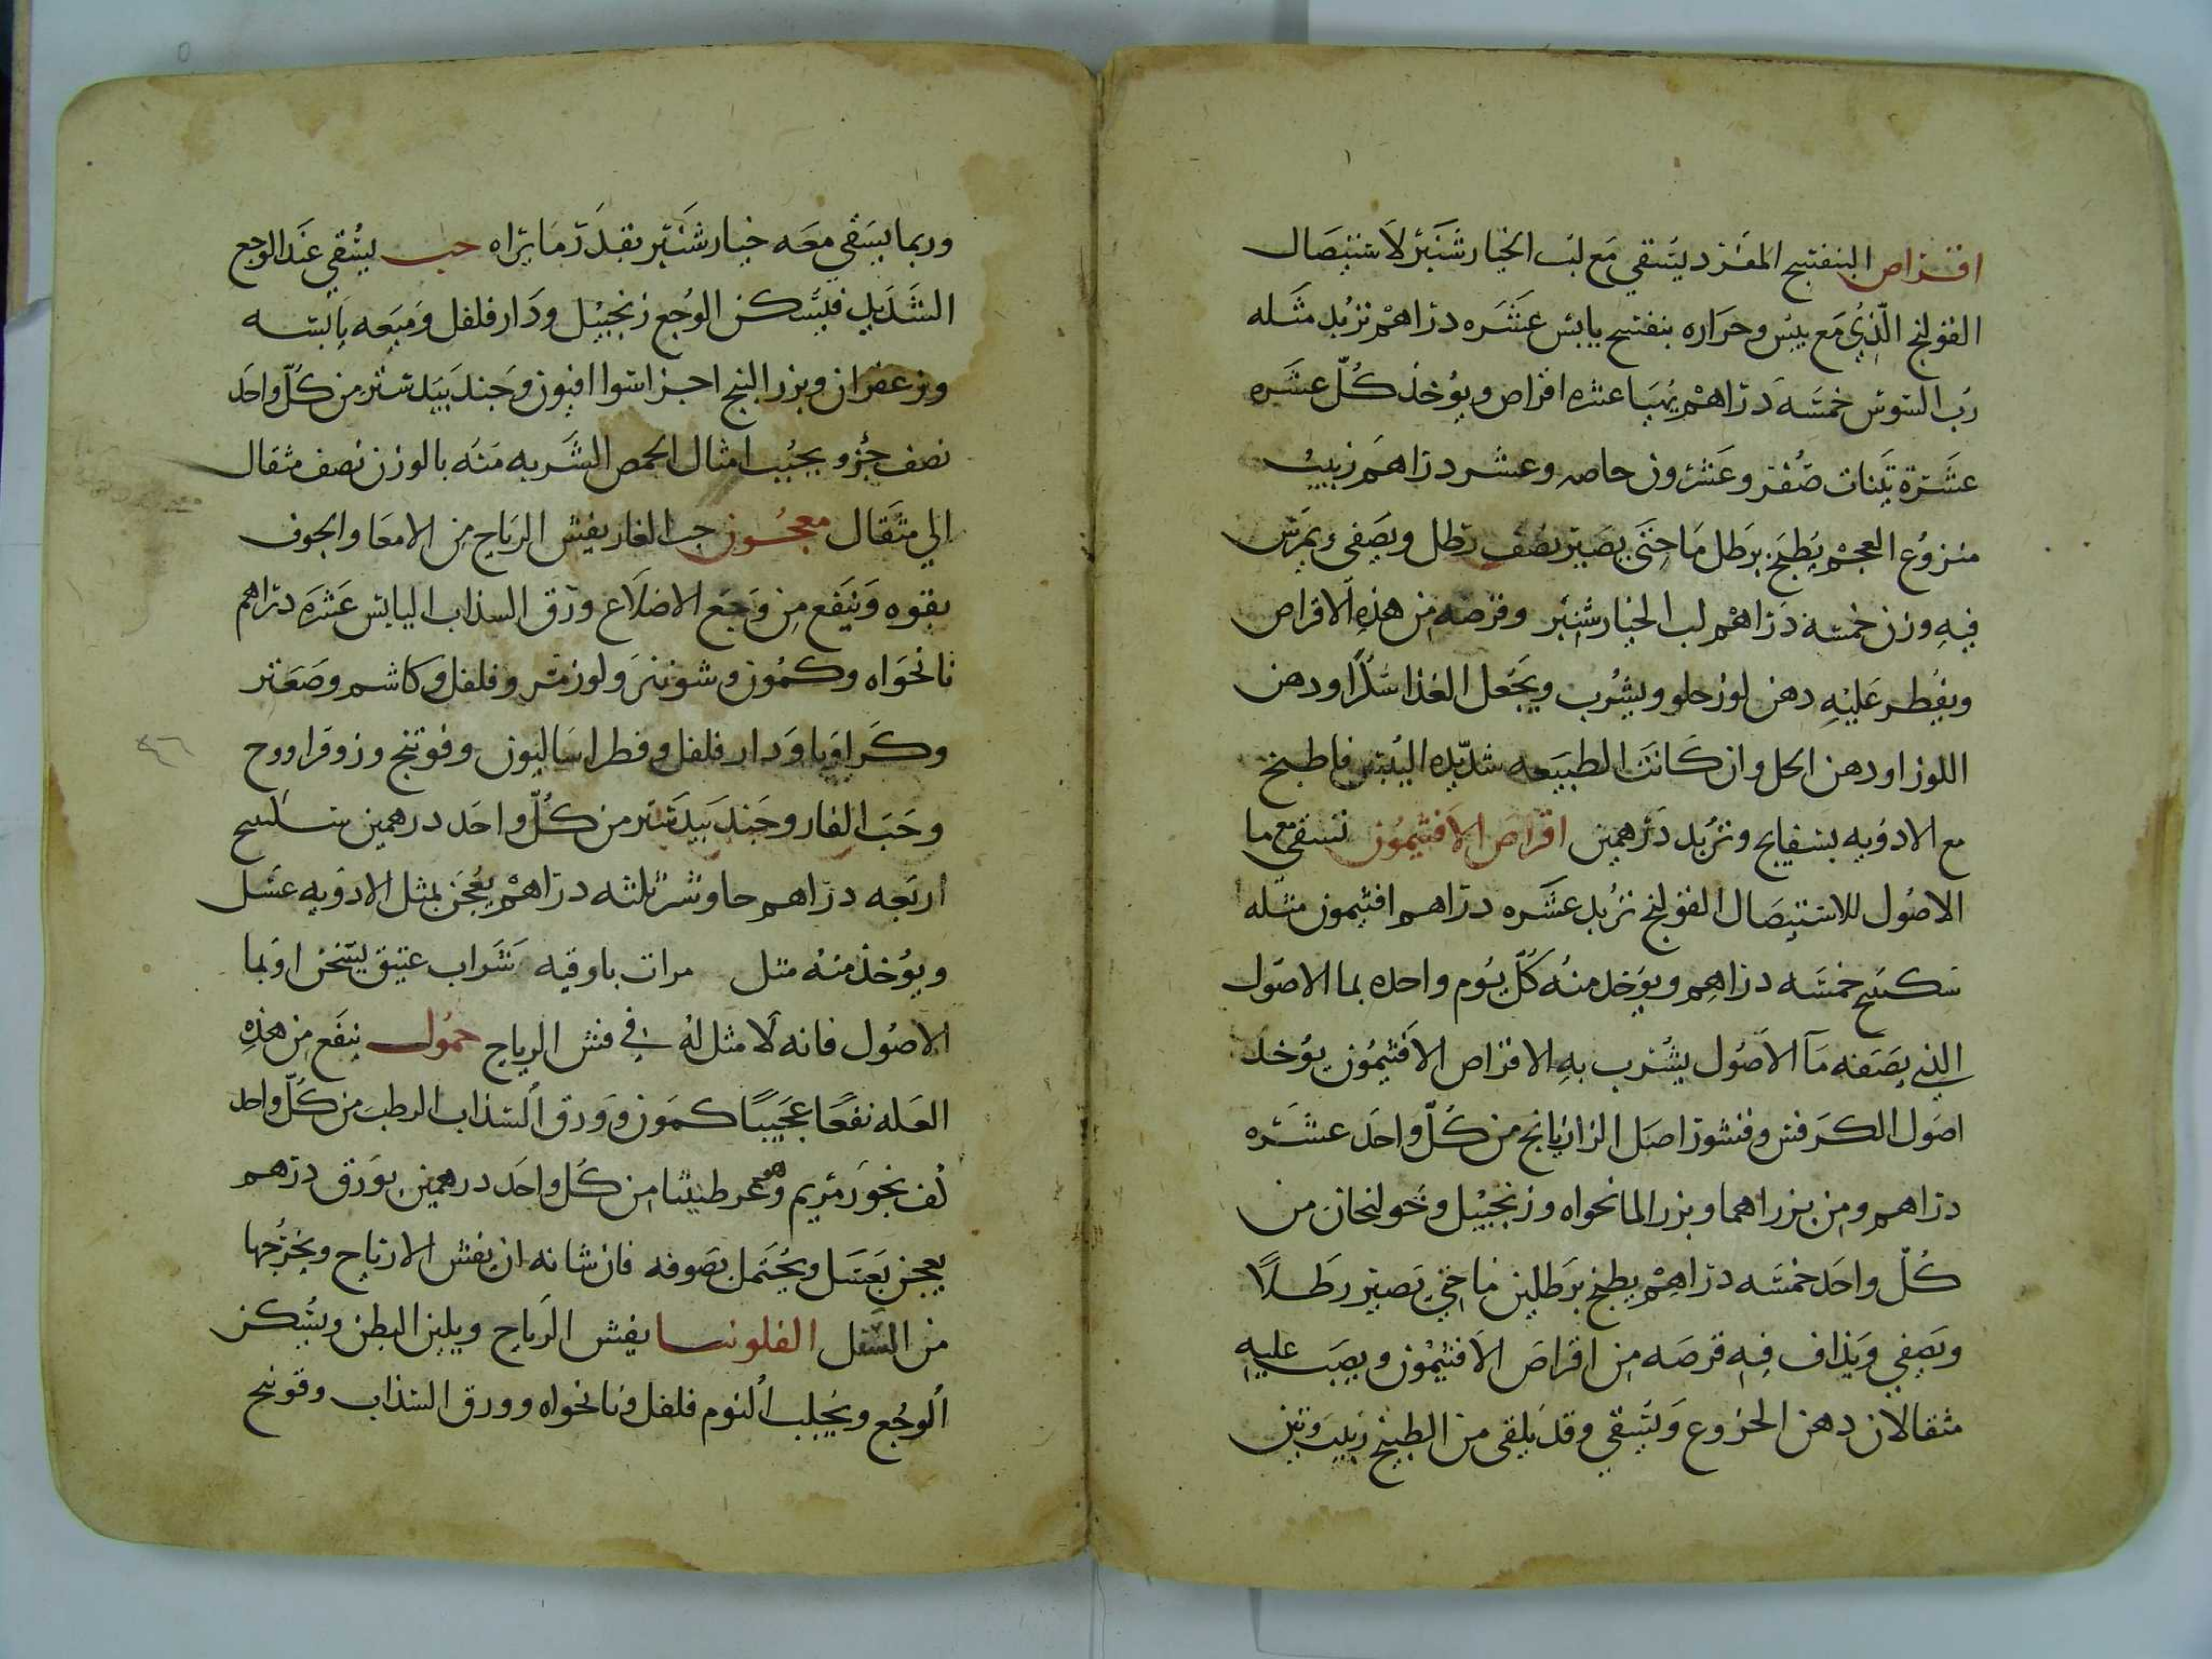 اقراص البنفسج المفرد يسقي مع لب الخيارشنبر لاستيصال
القولنج الذي مع يبس وحراره بنفسج يابس عشره دراهم تربد مثله
رب السوس خمسه دراهم يهيا عشره اقراص ويوخذ كل عشره
عشرة تينات صفر وعشرون حاصه وعشر دراهم زبيب
منزوع العجم يطبخ برطل ما حتى يصير نصف رطل ويصفي ويمرس
فيه وزن خمسه دراهم لب الخيارشنبر وقرصه من هذه الاقراص
ويقطر عليه دهن لوز حلو ويشرب ويجعل الغذا سكرا ودهن
اللوز اودهن الحل وان كانت الطبيعه شديده اليبس فاطبخ
مع الادويه بسفايج وتربد درهمين اقراص الافثيمون تسقي مع ما
الاصول للاستيصال القولنج تربد عشره دراهم افثيمون مثله
سكبينج خمسه دراهم ويوخد منه كل يوم واحده بما الاصول
الذي يصفه ما الاصول يشرب به الاقراص الافثيمون يوخد
اصول الكرفس وقشور اصل الرازيانج من كل واحد عشره
دراهم ومن بزراهما وبزر المانخواه وزنجبيل وخولنجان من
كل واحد خمسه دراهم يطبخ برطلين ما حتى يصير رطلا
ويصفي ويذاف فيه قرصه من اقراص الافثيمون ويصب عليه
مثقالان دهن الخروع ويسقي وقد يلقى من الطبيخ زبيب وتين
وربما يسقي معه خيارشنبر بقدر ما يراه حب يسقي عند الوجع
الشديد فيسكن الوجع زنجبيل ودارفلفل وميعه يابسه
وزعفران وبزر البنج اجزا سوا افيون وجندبيدستر من كل واحد
نصف جزو يحبب امثال الحمص الشربه منه بالوزن نصف مثقال
الي مثقال معجون حب الغار يفش الرياح من الامعا والجوف
بقوه وينفع من وجع الاضلاع ورق السذاب اليابس عشره دراهم
نانخواه وكمون وشونيز ولوز مر وفلفل وكاشم وصعتر
وكراويا ودارفلفل وفطراساليون وفوتنج وزوفرا ووج
وحب الغار وجندبيدستر من كل واحد درهمين سكبينج
اربعه دراهم جاوشير ثلثه دراهم يعجن بمثل الادويه عسل
ويوخذ منه مثل مرات باوقيه شراب عتيق يسخن اوبما
الاصول فانه لا مثل له في فش الرياح حمول ينفع من هذه
العله نفعا عجيبا كمون وورق السذاب الرطب من كل واحد
كف بخور مريم وهو عرطنيثا من كل واحد درهمين بورق درهم
يعجن بعسل ويحتمل بصوفه فان شانه ان يفش الارياح ويخرجها
من السفل الفلونيا يفش الرياح ويلين البطن ويسكن
الوجع ويجلب النوم فلفل ونانخواه وورق السذاب وفوتنج